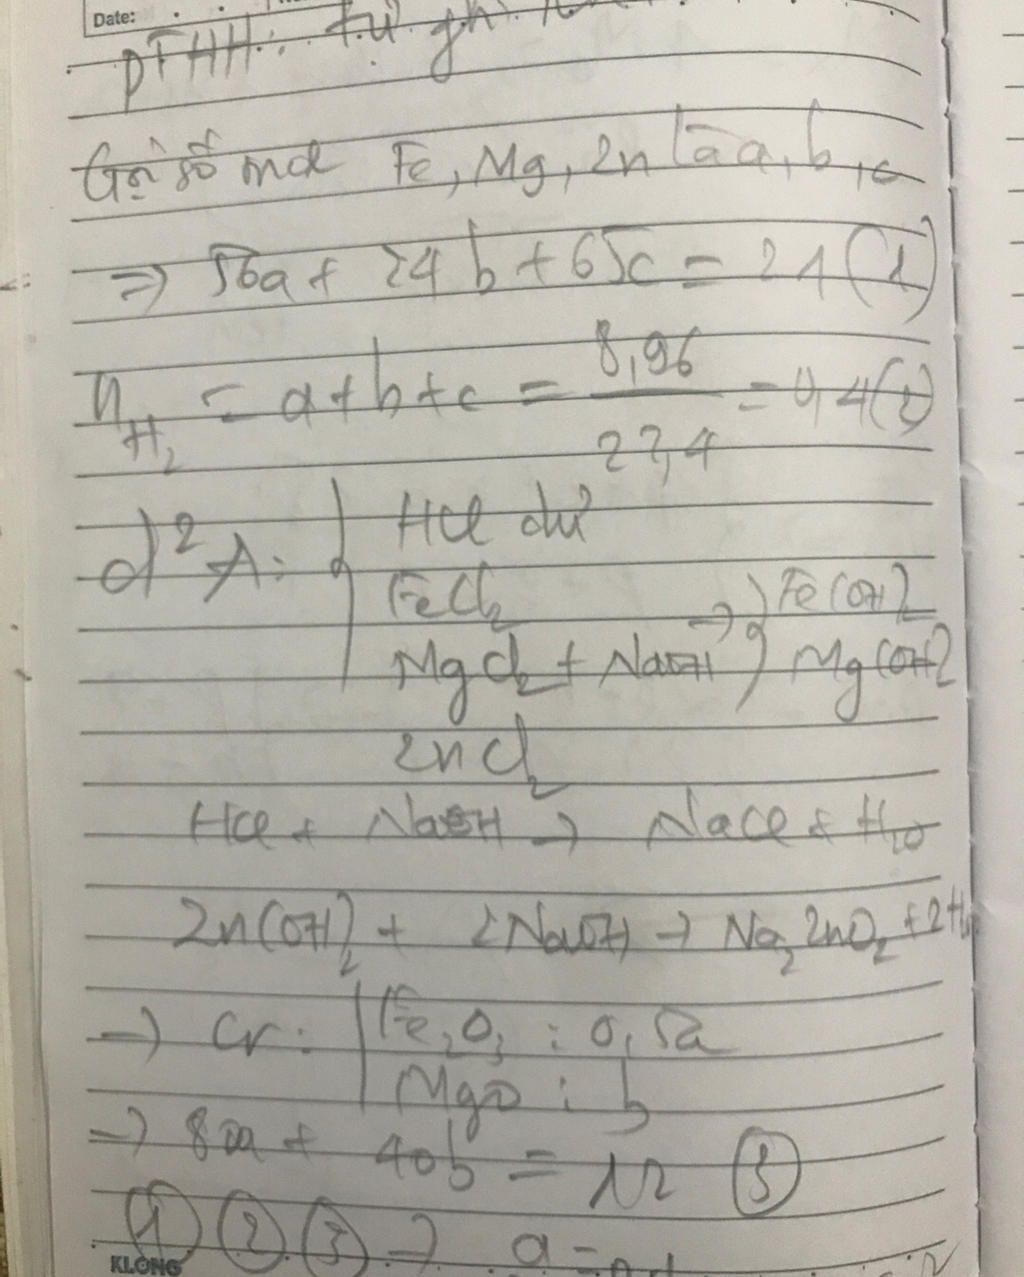 Date:
PTHH: tự ghi
Gọi số mol Fe, Mg, Zn là a, b, c
=> 56a + 24b + 65c = 21 (1)
n H₂ = a + b + c = 8,96 / 22,4 = 0,4 (2)
d² A: { HCl dư
FeCl₂ → { Fe(OH)₂
MgCl₂ + NaOH } Mg(OH)₂
ZnCl₂
HCl + NaOH → NaCl + H₂O
Zn(OH)₂ + 2NaOH → Na₂ZnO₂ + 2H₂
→ Cr: | Fe₂O₃ : 0,5a
MgO : b
→ 80a + 40b = 12 (3)
(1) (2) (3) → a =
KLONG